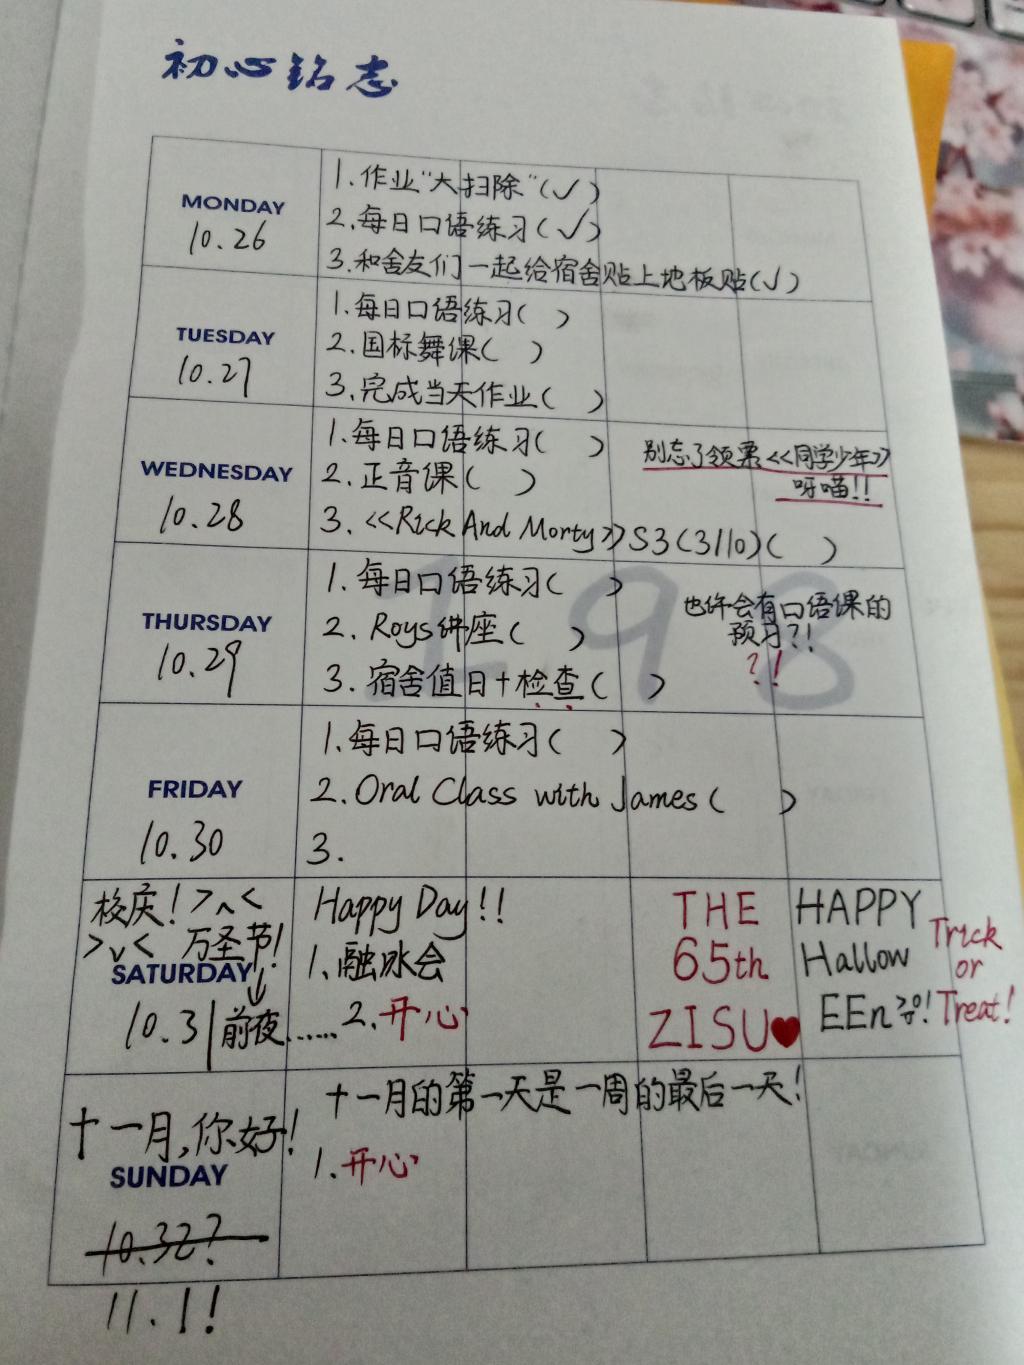 初心铭志
MONDAY
10.26
1.作业“大扫除”(✓)
2.每日口语练习(✓)
3.和舍友们一起给宿舍贴上地板贴(✓)
TUESDAY
10.27
1.每日口语练习( )
2.国标舞课( )
3.完成当天作业( )
WEDNESDAY
10.28
1.每日口语练习( )
2.正音课( )
3.<<Rick And Morty>>S3(3/10)( )
别忘了领票<<同学少年>>
呀喵!!
THURSDAY
10.29
1.每日口语练习( )
2.Roys讲座( )
3.宿舍值日+检查( )
也许会有口语课的
预习?!
?!
198
FRIDAY
10.30
1.每日口语练习( )
2.Oral Class with James( )
3.
校庆!>^<
>v< 万圣节!
SATURDAY
10.31
前夜......
Happy Day!!
1.融冰会
2.开心
THE
65th
ZISU♥
HAPPY
Hallow
EEn !
Trick
or
Treat!
十一月,你好!
SUNDAY
10.32?
11.1!
十一月的第一天是一周的最后一天!
1.开心